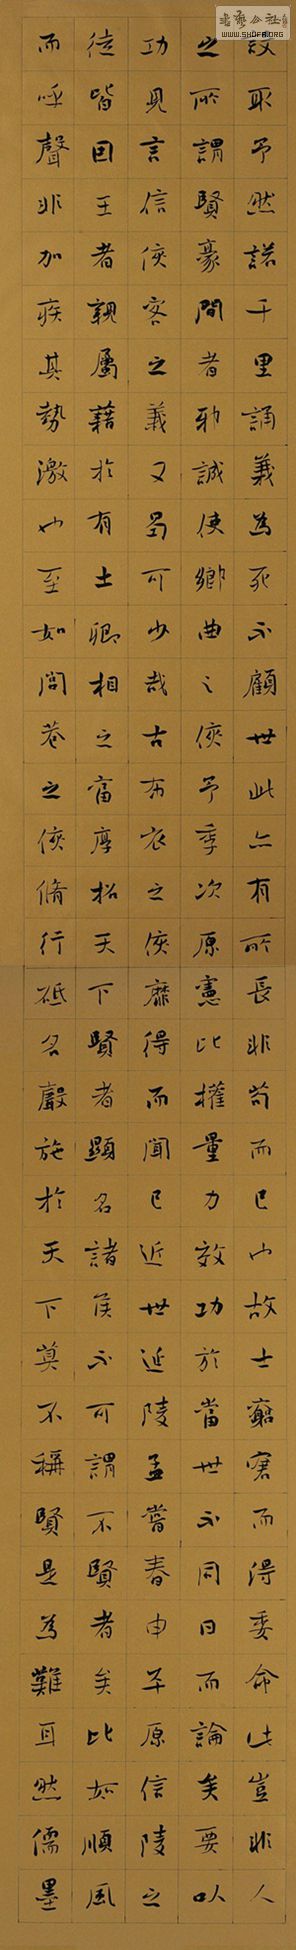 設取予然諾千里誦義為死不顧世此亦有所長非苟而已也故士窮窘而得委命此豈非人
之所謂賢豪間者邪誠使鄉曲之俠予季次原憲比權量力效功於當世不同日而論矣要以
功見言信俠客之義又曷可少哉古布衣之俠靡得而聞已近世延陵孟嘗春申平原信陵之
徒皆因王者親屬藉於有土卿相之富厚招天下賢者顯名諸侯不可謂不賢者矣比如順風
而呼聲非加疾其勢激也至如閭巷之俠脩行砥名聲施於天下莫不稱賢是為難耳然儒墨
WWW.SHUFA.ORG